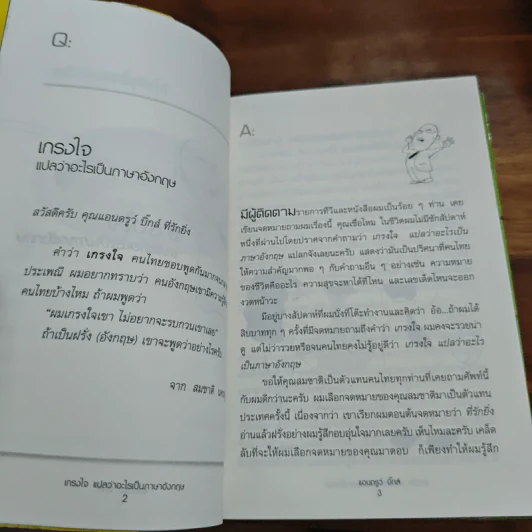 Q:
เกรงใจ
แปลว่าอะไรเป็นภาษาอังกฤษ
สวัสดีครับ คุณแอนดรูว์ บิ๊กส์ ที่รักยิ่ง
คำว่า เกรงใจ คนไทยชอบพูดกันมาก
ประเพณี ผมอยากทราบว่า คนอังกฤษเขามีความรู้สึก
คนไทยบ้างไหม ถ้าผมพูดว่า
"ผมเกรงใจเขา ไม่อยากจะรบกวนเขาเลย"
ถ้าเป็นฝรั่ง (อังกฤษ) เขาจะพูดว่าอย่างไรครับ
จาก สมชาติ
เกรงใจ แปลว่าอะไรเป็นภาษาอังกฤษ
2
A:
มีผู้ติดตามรายการทีวีและหนังสือผมเป็นร้อย ๆ ท่าน เคย
เขียนจดหมายถามผมเรื่องนี้ คุณเชื่อไหม ในชีวิตผมไม่มีซักสัปดาห์
หนึ่งที่ผ่านไปโดยปราศจากคำถามว่า เกรงใจ แปลว่าอะไรเป็น
ภาษาอังกฤษ แปลกจังเลยนะครับ แสดงว่ามันเป็นปริศนาที่คนไทย
ให้ความสำคัญมากพอ ๆ กับคำถามอื่น ๆ อย่างเช่น ความหมาย
ของชีวิตคืออะไร ความสุขจะหาได้ที่ไหน และเลขเด็ดไหนจะออก
งวดหน้าวะ
มีอยู่บางสัปดาห์ที่ผมนั่งที่โต๊ะทำงานและคิดว่า อ้อ...ถ้าผมได้
สิบบาททุก ๆ ครั้งที่มีจดหมายถามถึงคำว่า เกรงใจ ผมคงจะรวยน่า
ดู แต่ไม่ว่ารวยหรือจนคนไทยคงไม่รู้อยู่ดีว่า เกรงใจ แปลว่าอะไร
เป็นภาษาอังกฤษ
ขอให้คุณสมชาติเป็นตัวแทนคนไทยทุกท่านที่เคยถามศัพท์นี้
กับผมดีกว่านะครับ ผมเลือกจดหมายของคุณสมชาติมาเป็นตัวแทน
ประเทศครั้งนี้ เนื่องจากว่า เขาเรียกผมตอนต้นจดหมายว่า ที่รักยิ่ง
อ่านแล้วฝรั่งอย่างผมรู้สึกอบอุ่นใจมากเลยครับ เห็นไหมละครับ เคล็ด
ลับที่จะให้ผมเลือกจดหมายของคุณมาตอบ ก็เพียงทำให้ผมรู้สึก
แอนดรูว์ บิ๊กส์
3